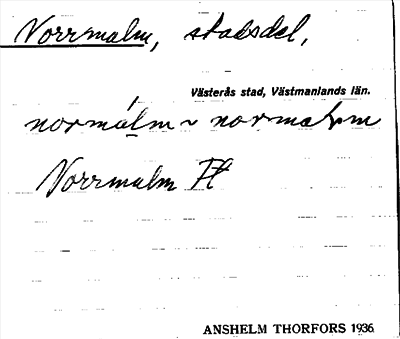 Norrmalm, stadsdel,
Västerås stad, Västmanlands län.
normálm ~ normalm
Norrmalm Pl
ANSHELM THORFORS 1936.